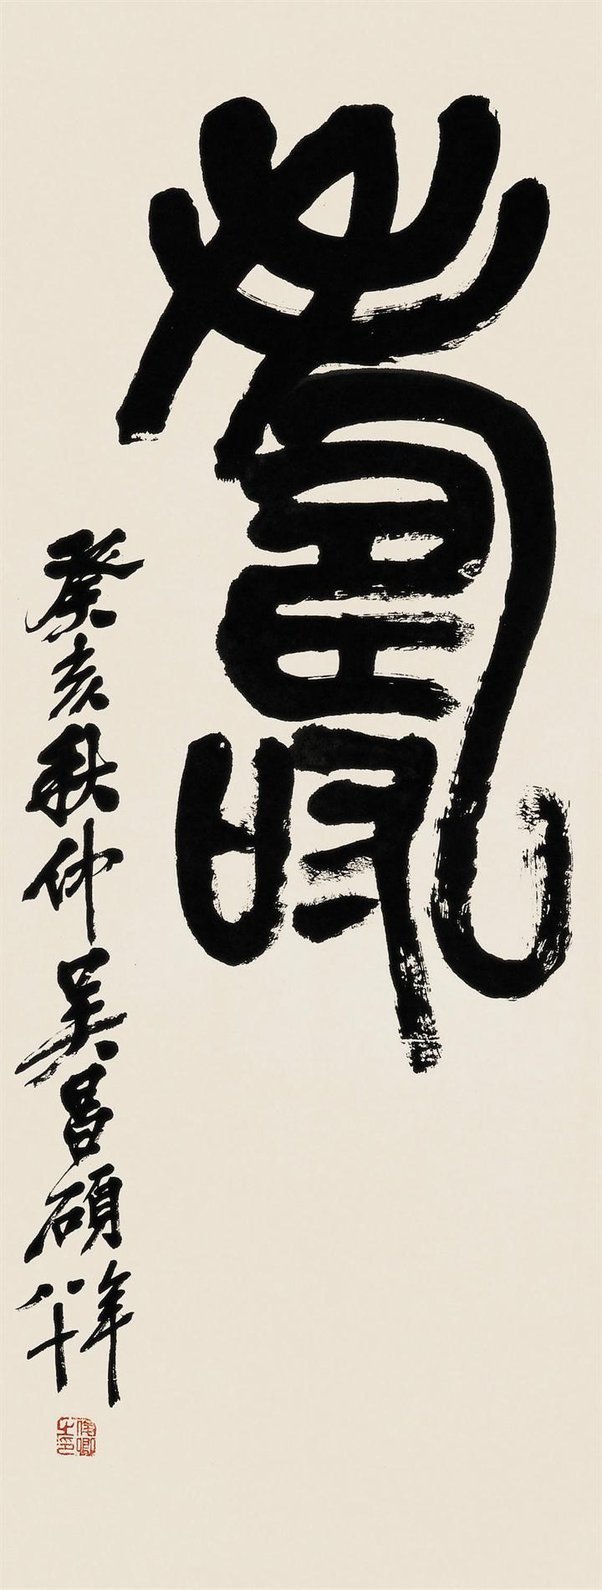 壽
癸亥秋仲吳昌碩年八十
俊卿之印